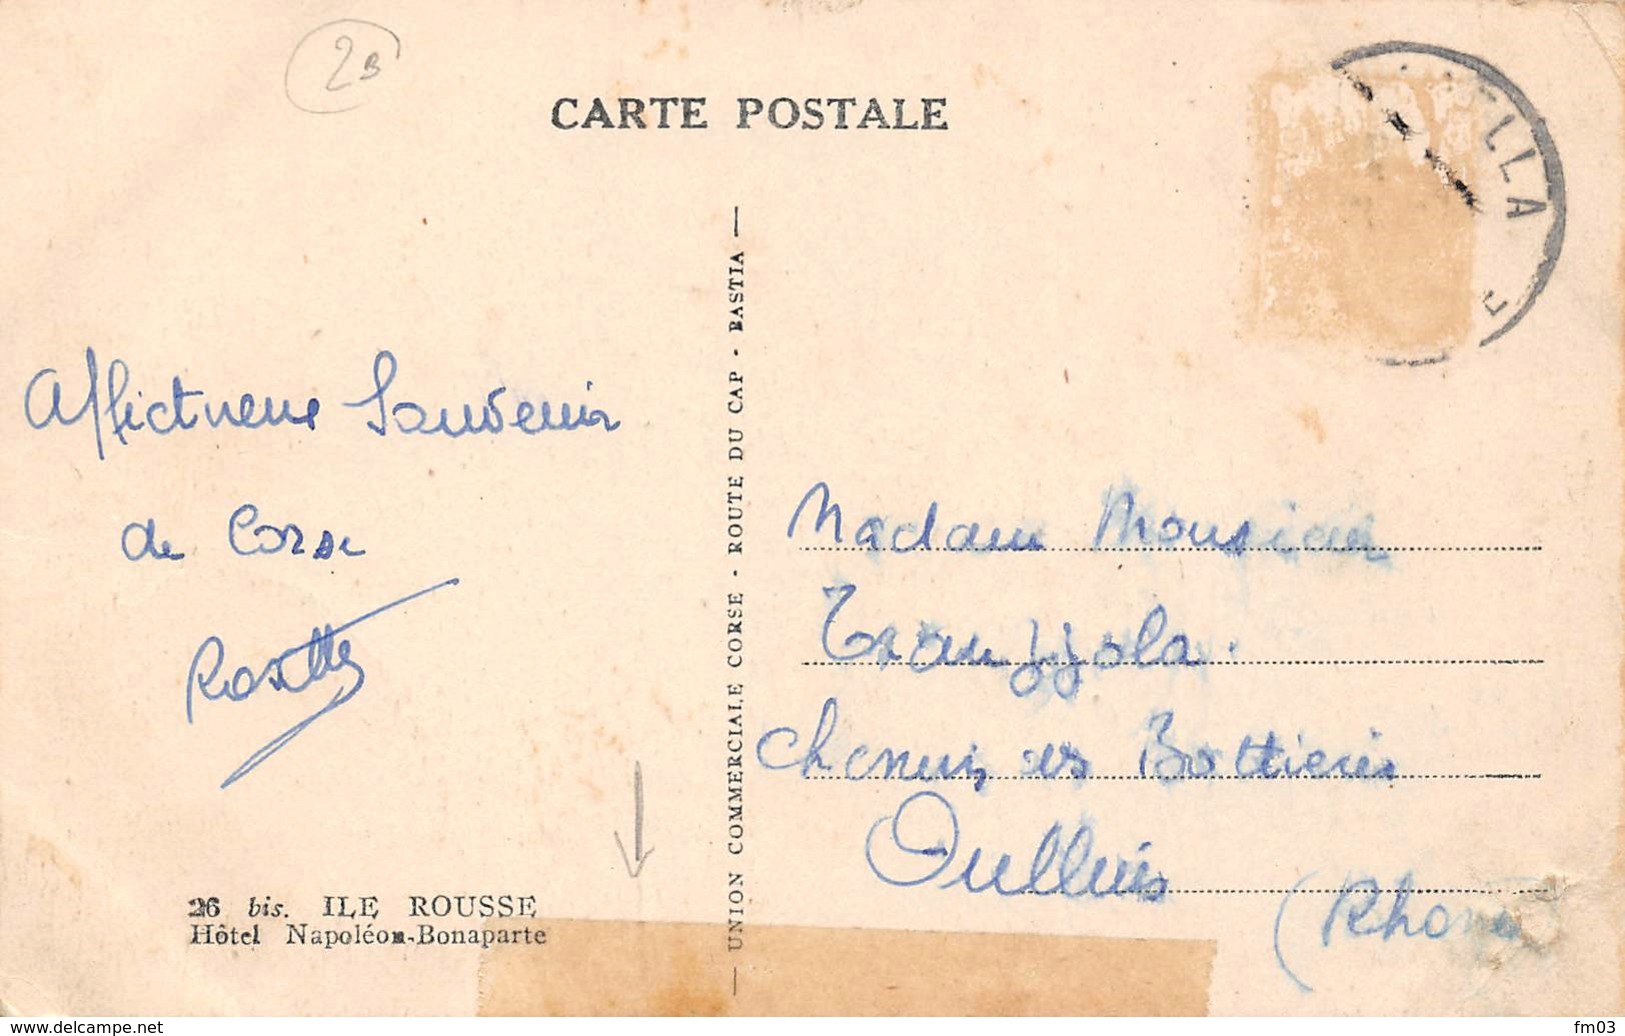 2B
CARTE POSTALE
ELLA
Affectueux Souvenir
de Corse
UNION COMMERCIALE CORSE - ROUTE DU CAP - BASTIA
26 bis. ILE ROUSSE
Hôtel Napoléon-Bonaparte
Madame Monsieur
Chemin des
Oullins
(Rhone
https://www.delcampe.net
fm03